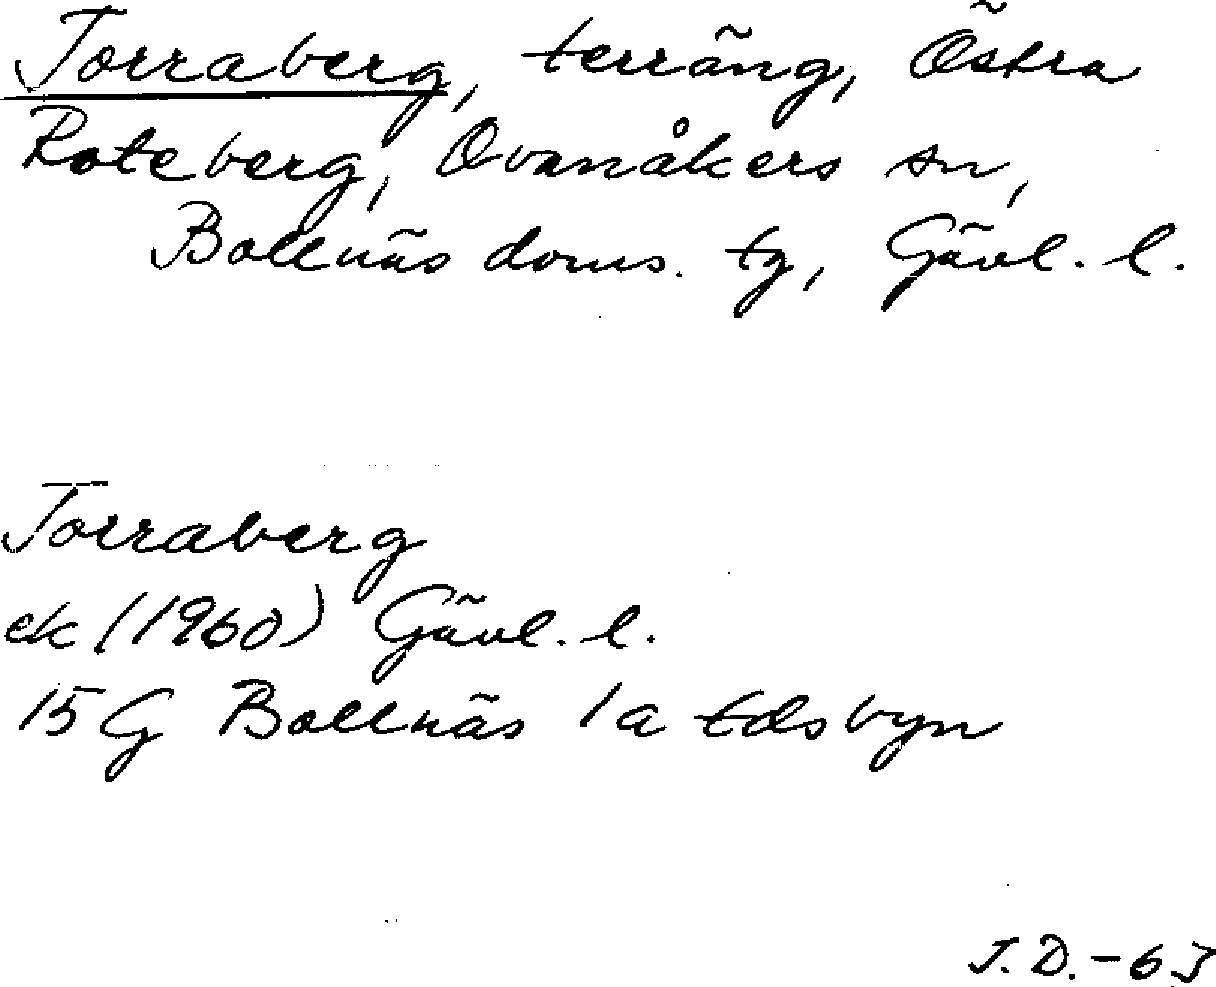 Torraberg, terräng, Östra
Roteberg, Ovanåkers sn,
Bollnäs doms. tg, Gävl. l.
Torraberg
ek (1960) Gävl. l.
15 G Bollnäs 1a Edsbyn
J.D.-63